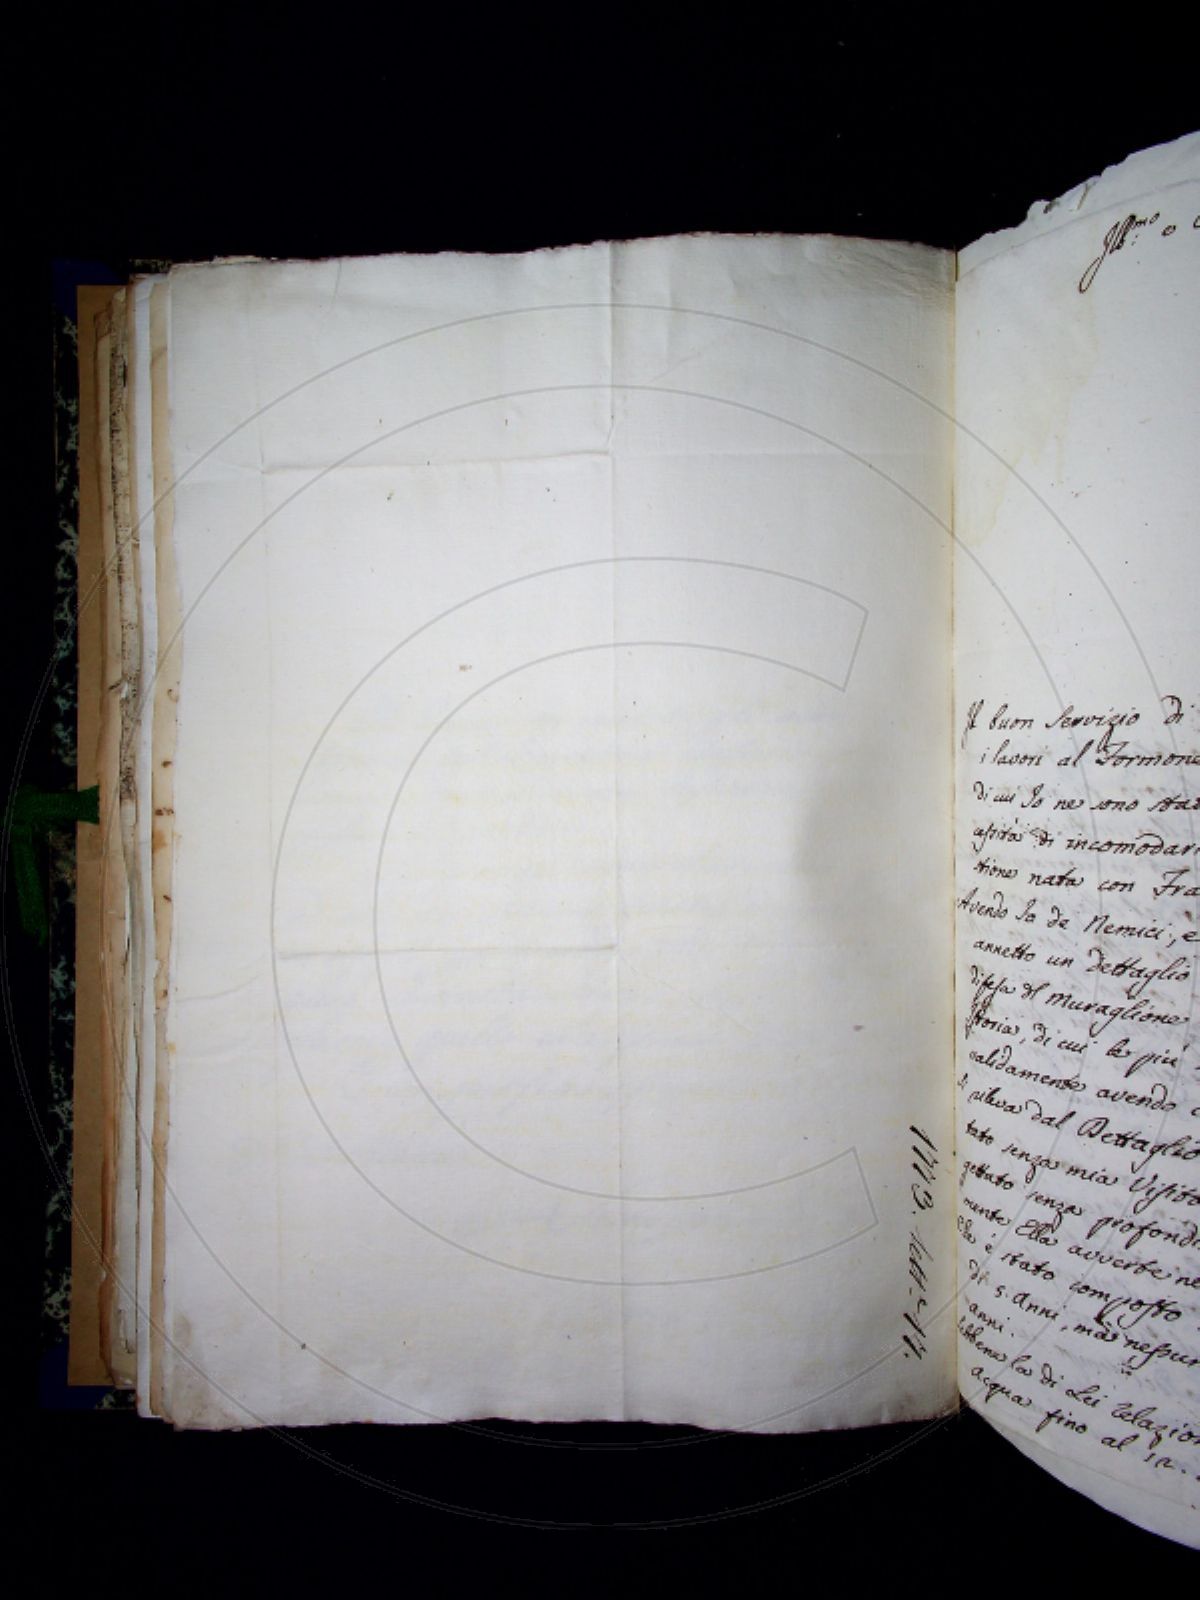 1773. Lett.e 14.
Ill.mo e
Il buon Servizio di
i lavori al Formone
di cui Io ne sono stat
di incomodar
stione nata con Fra
Avendo Io de Nemici, e
annetto un dettaglio
difesa del Muraglione
storia, di cui le più
validamente avendo
rileva dal Dettaglio
tato senza mia Visita
gettato senza profond
mente Ella avverte ne
è stato composto
di 5. Anni, mà nessun
anni.
la di Lei relazion
acqua fino al 12.